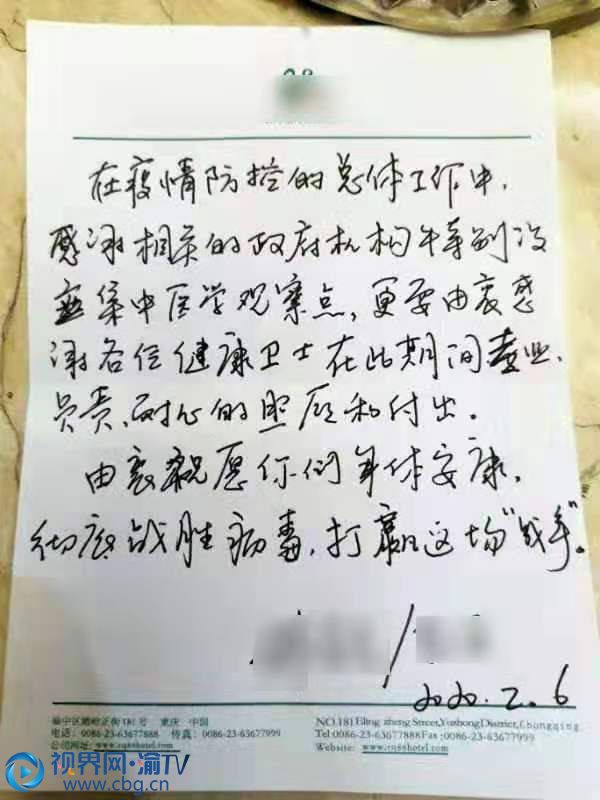 在疫情防控的总体工作中,
感谢相关的政府机构特别设
立集中医学观察点,更要由衷感
谢各位健康卫士在此期间专业、
负责、耐心的照顾和付出。
由衷祝愿你们身体安康,
彻底战胜病毒,打赢这场“战争”。
2020.2.6
渝中区鹅岭正街181号 重庆 中国
电话:0086-23-63677888 传真:0086-23-63677999
公司网址:www.cq88hotel.com
NO.181 Eling zheng Street,Yuzhong District,Chongqing
Tel:0086-23-63677888 Fax:0086-23-63677999
Website: www.cq88hotel.com
视界网·渝TV
www.cbg.cn